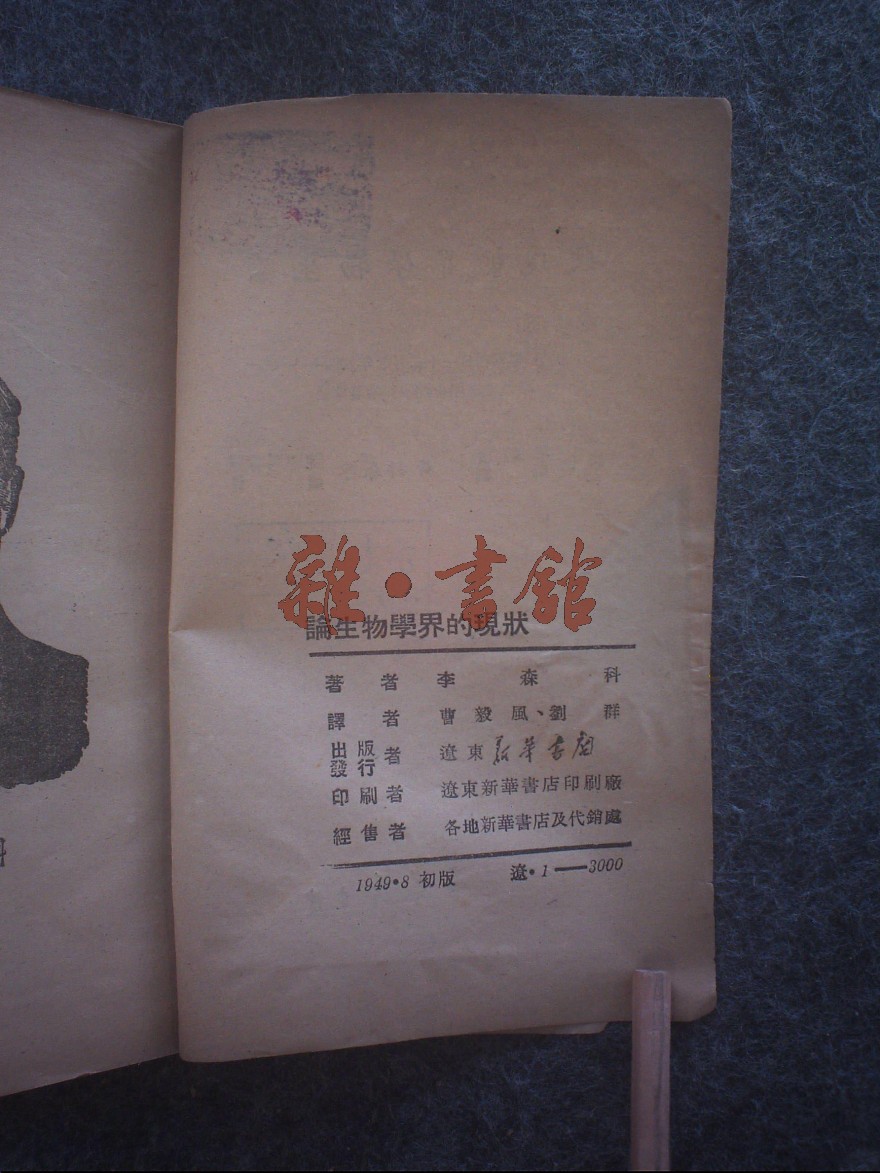 雜·書館
論生物學界的現狀
著者 李森科
譯者 曹毅風、劉群
出版發行者 遼東新華書店
印刷者 遼東新華書店印刷廠
經售者 各地新華書店及代銷處
1949·8 初版 遼·1—3000